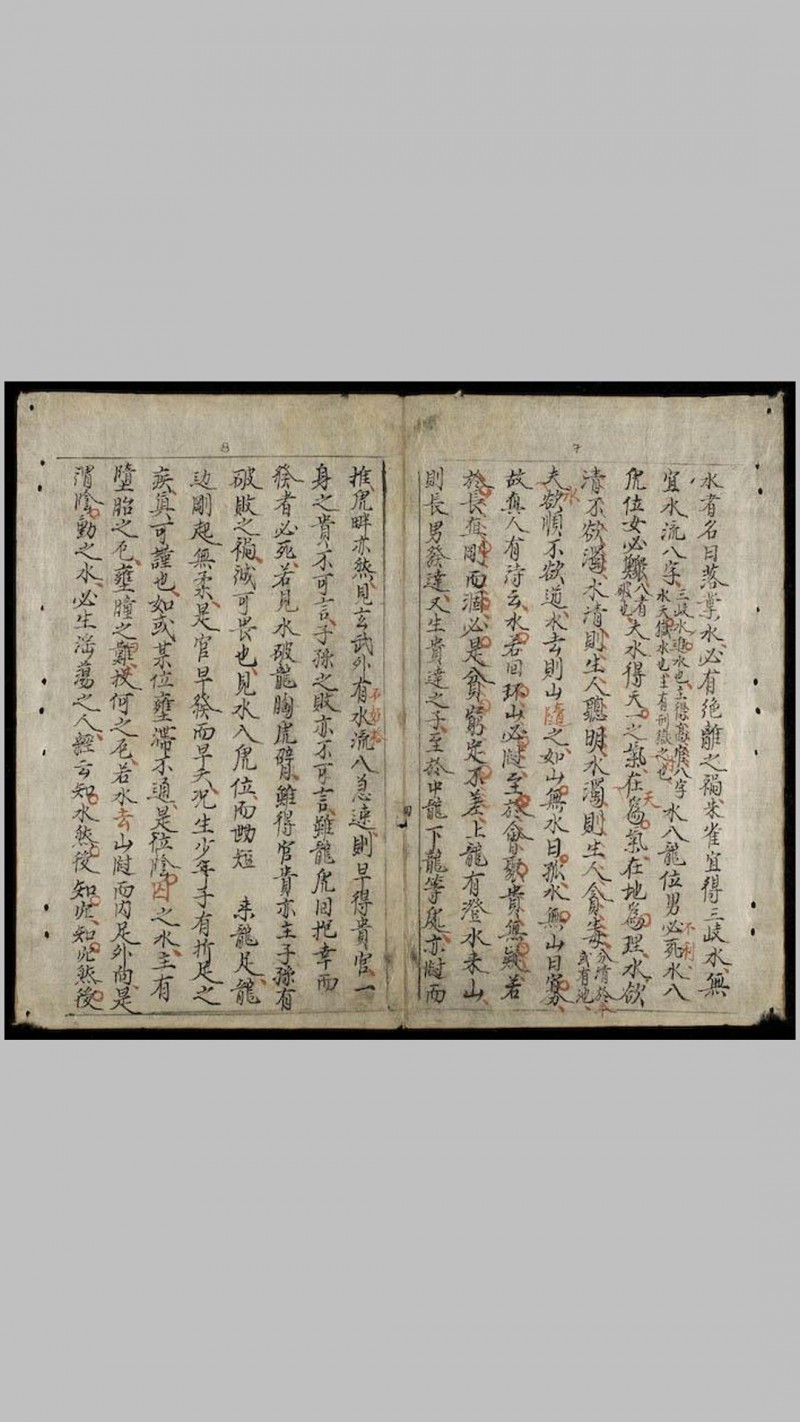 7
水者名曰落葉水必有絶離之禍朱雀宜得三岐水無
宜水流八字三岐水進水也主得高官八字水天獄水也主有刑獄之也水八龍位男必死不利水八
虎位女必難八者破也夫水得天一之氣在天為氣在地為理水欲
清不欲濁水清則生人聰明水濁則生人貪毒
夫水欲順不欲道水去則山隨之如山無水曰孤水無山曰寡
故真人有诗云水若回环山必隨至於會聚貴無疑若
於長在剛而涸必是貧窮定不差上龍有澄水来山
則長男發達又生貴達之子至於中龍下龍等處亦隨而
8
推虎畔亦然見玄武外有水流八急速則早得貴官一
身之貴不可言子孫之敗亦不可言雖龍虎回抱幸而
發者必死若見水破龍胸虎臂雖得官貴亦主子孫有
破敗之禍誠可畏也見水入虎位而吻短 来龍足龍
边剛起無柔是官早發而早夭况生少年子有折足之
疾真可謹也如或某位壅滯不通是位陰囚之水主有
墮胎之厄壅腫之難投河之厄若水去山隨而内足外向是
謂陰動之水必生淫蕩之人經云知水然後知此知此然後